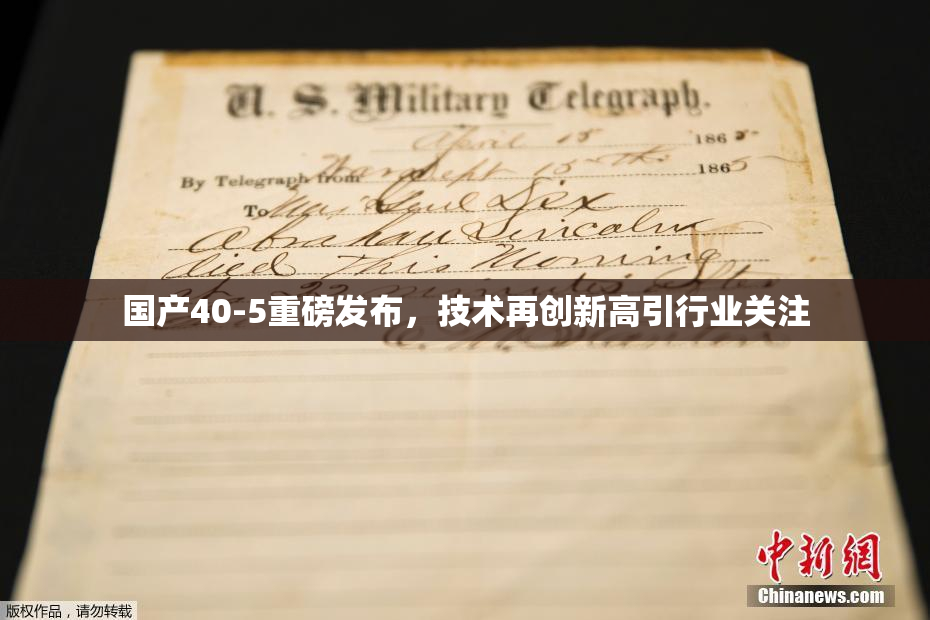 U. S. Military Telegraph.
April 15 1865
By Telegraph from War Dept 15th 1865
To Maj Genl Dix
Abraham Lincoln
died This Morning
at 22 minutes after
国产40-5重磅发布，技术再创新高引行业关注
E. M. Stanton
中新網
Chinanews.com
版权作品，请勿转载